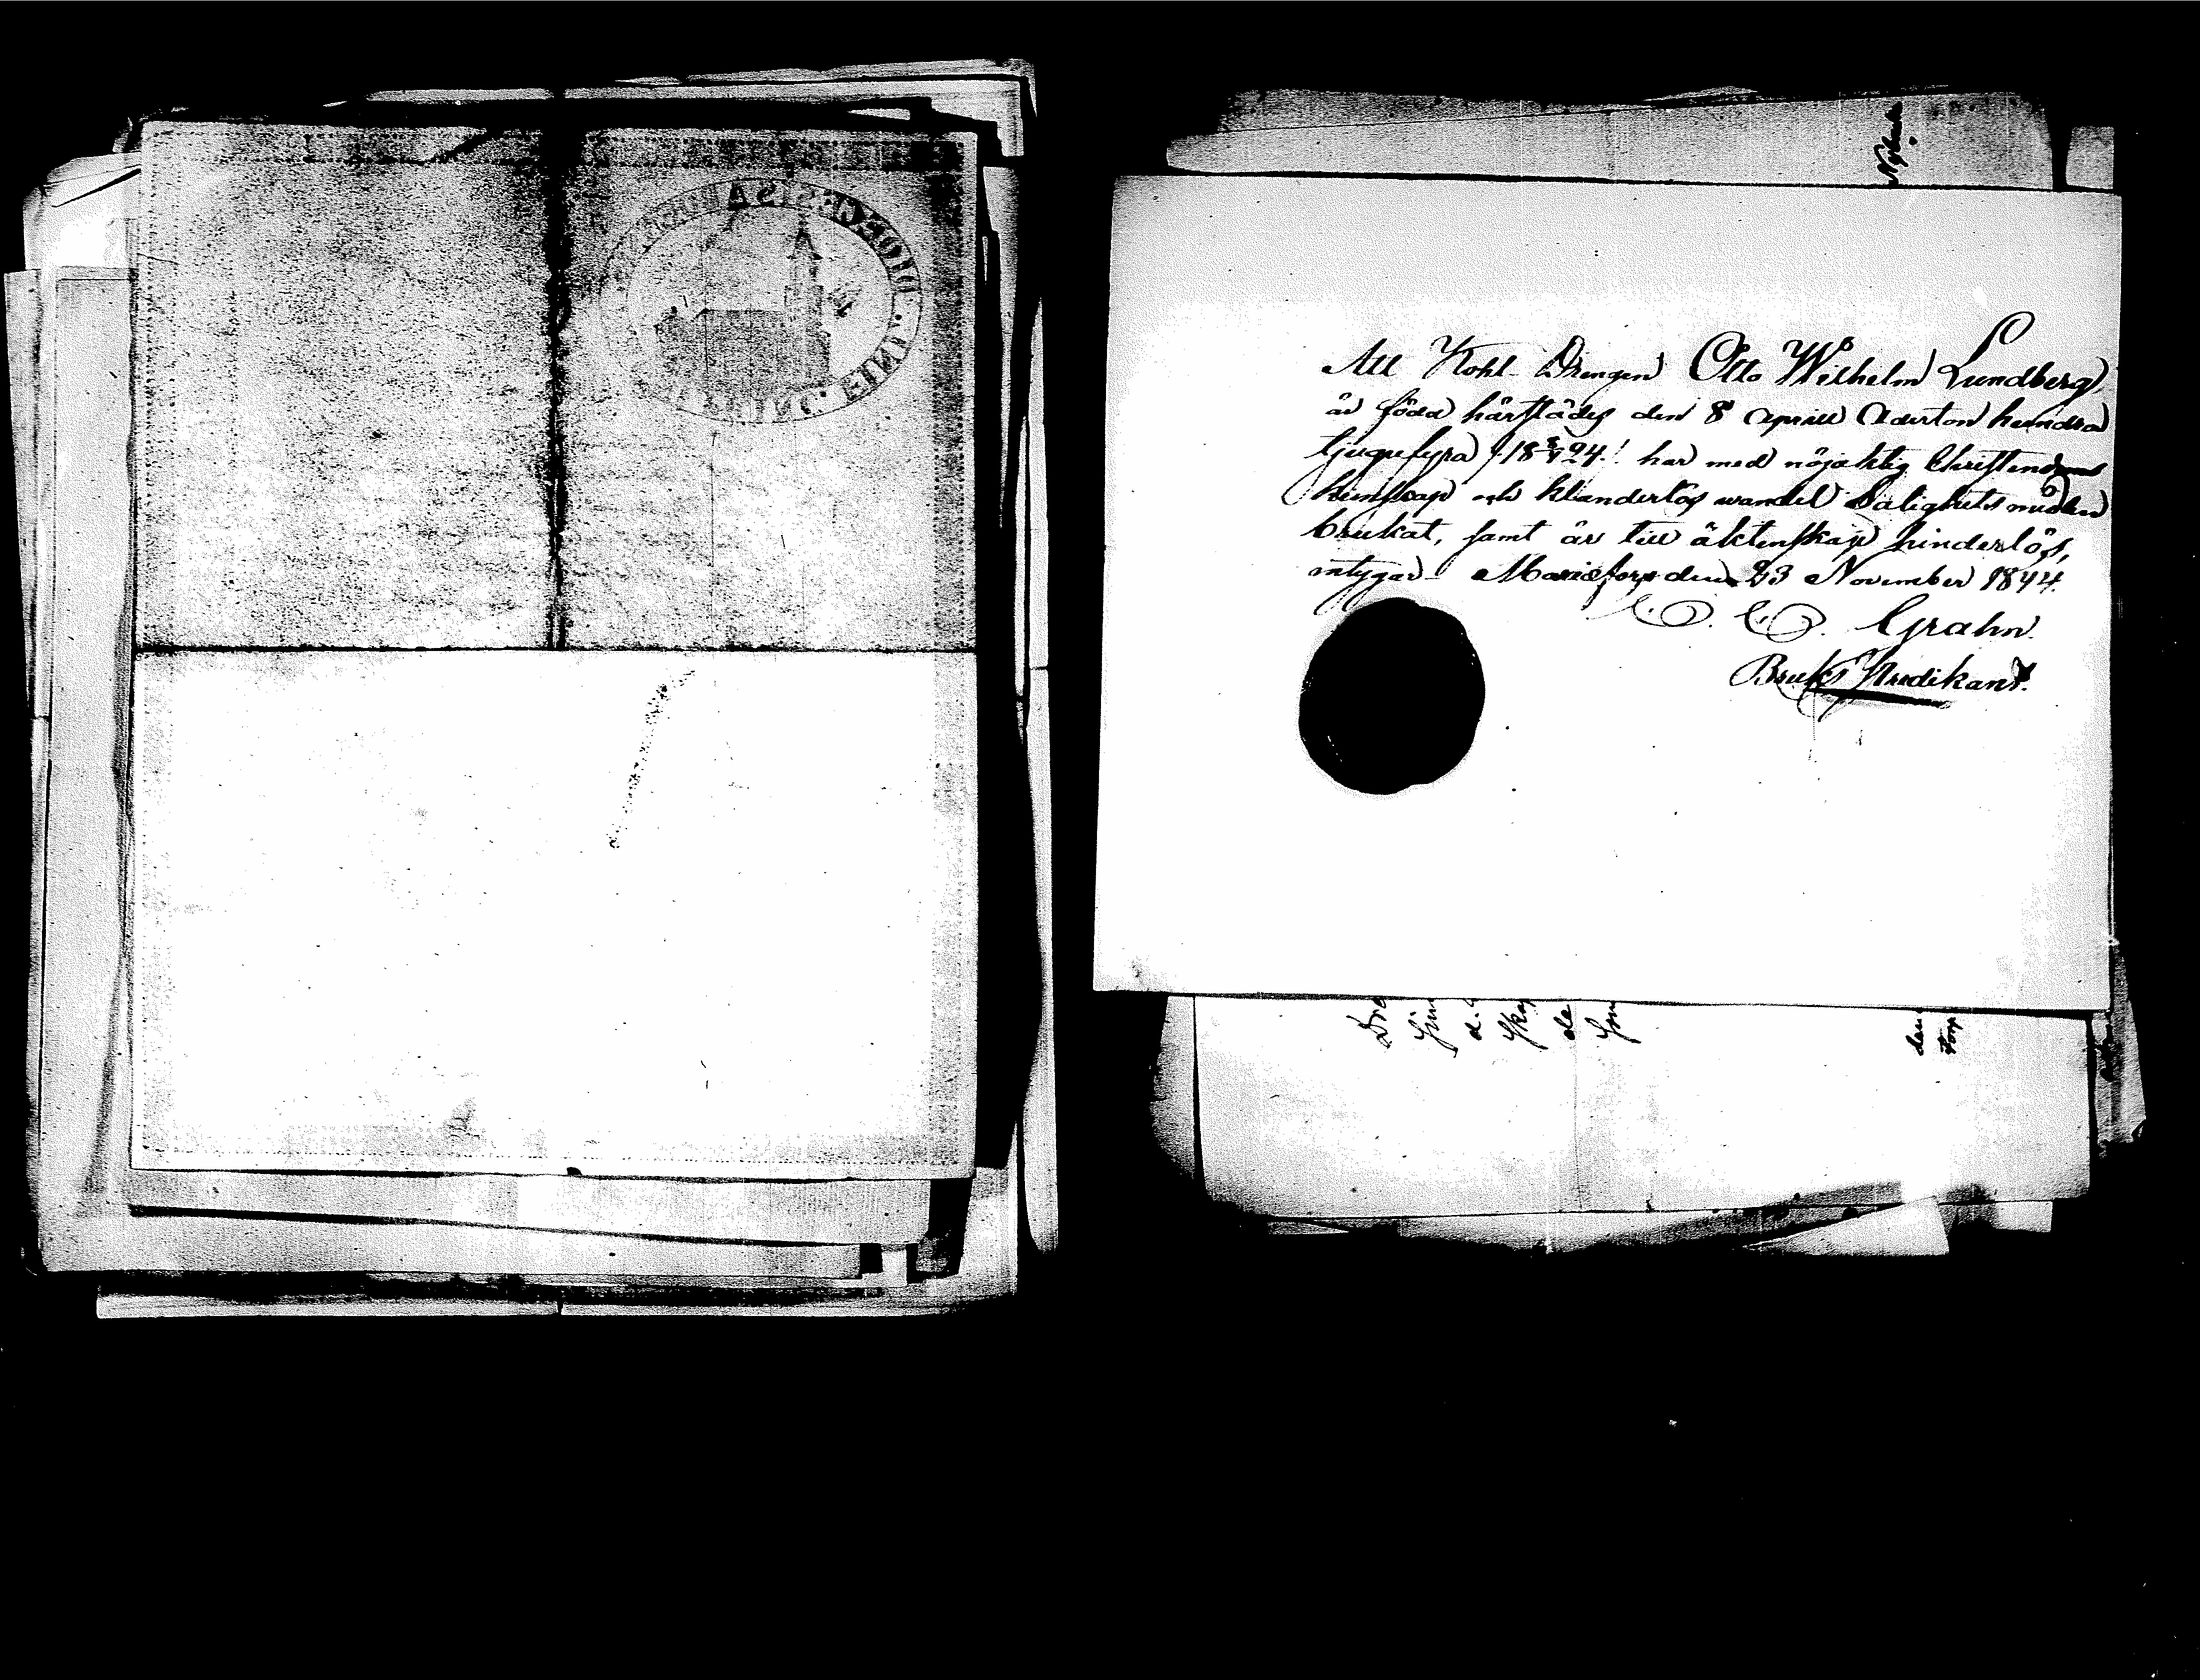 Att Kohl-Drengen Otto Wilhelm Lundberg,
är född härstädes den 8 Aprill Aderton hundra
tjugufyra /: 18 8/4 24. :/ har med nöjaktig Christendoms
kunskap och klanderlös wandel Salighetsmedlen
brukat, samt är till äktenskap hinderlös,
intygar Mariæforss den 23 November 1844.
Grahn.
Bruks Predikant.
de